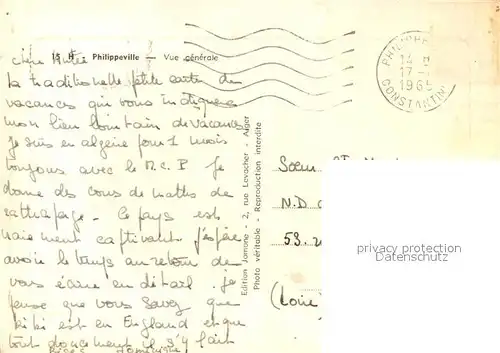 15 H Philippeville — Vue générale
chère
la traditionnelle petite carte de
vacances qui vous indiquera
mon lieu lointain de vacances
je suis en algérie pour 1 mois
toujours avec le M.C.P. Je
donne des cours de maths de
rattrapage - Ce pays est
vraiment captivant j'espère
avoir le temps au retour de
vous écrire en détail. je
pense que vous savez que
est en England et que
tout doucement il s'y fait
Bises
Edition Jomone - 2, rue Levacher - Alger
Photo véritable - Reproduction interdite
PHILIPPE
14
17
1965
CONSTANTIN
Soeur St
N.D
59.
(Loire
privacy protection
Datenschutz